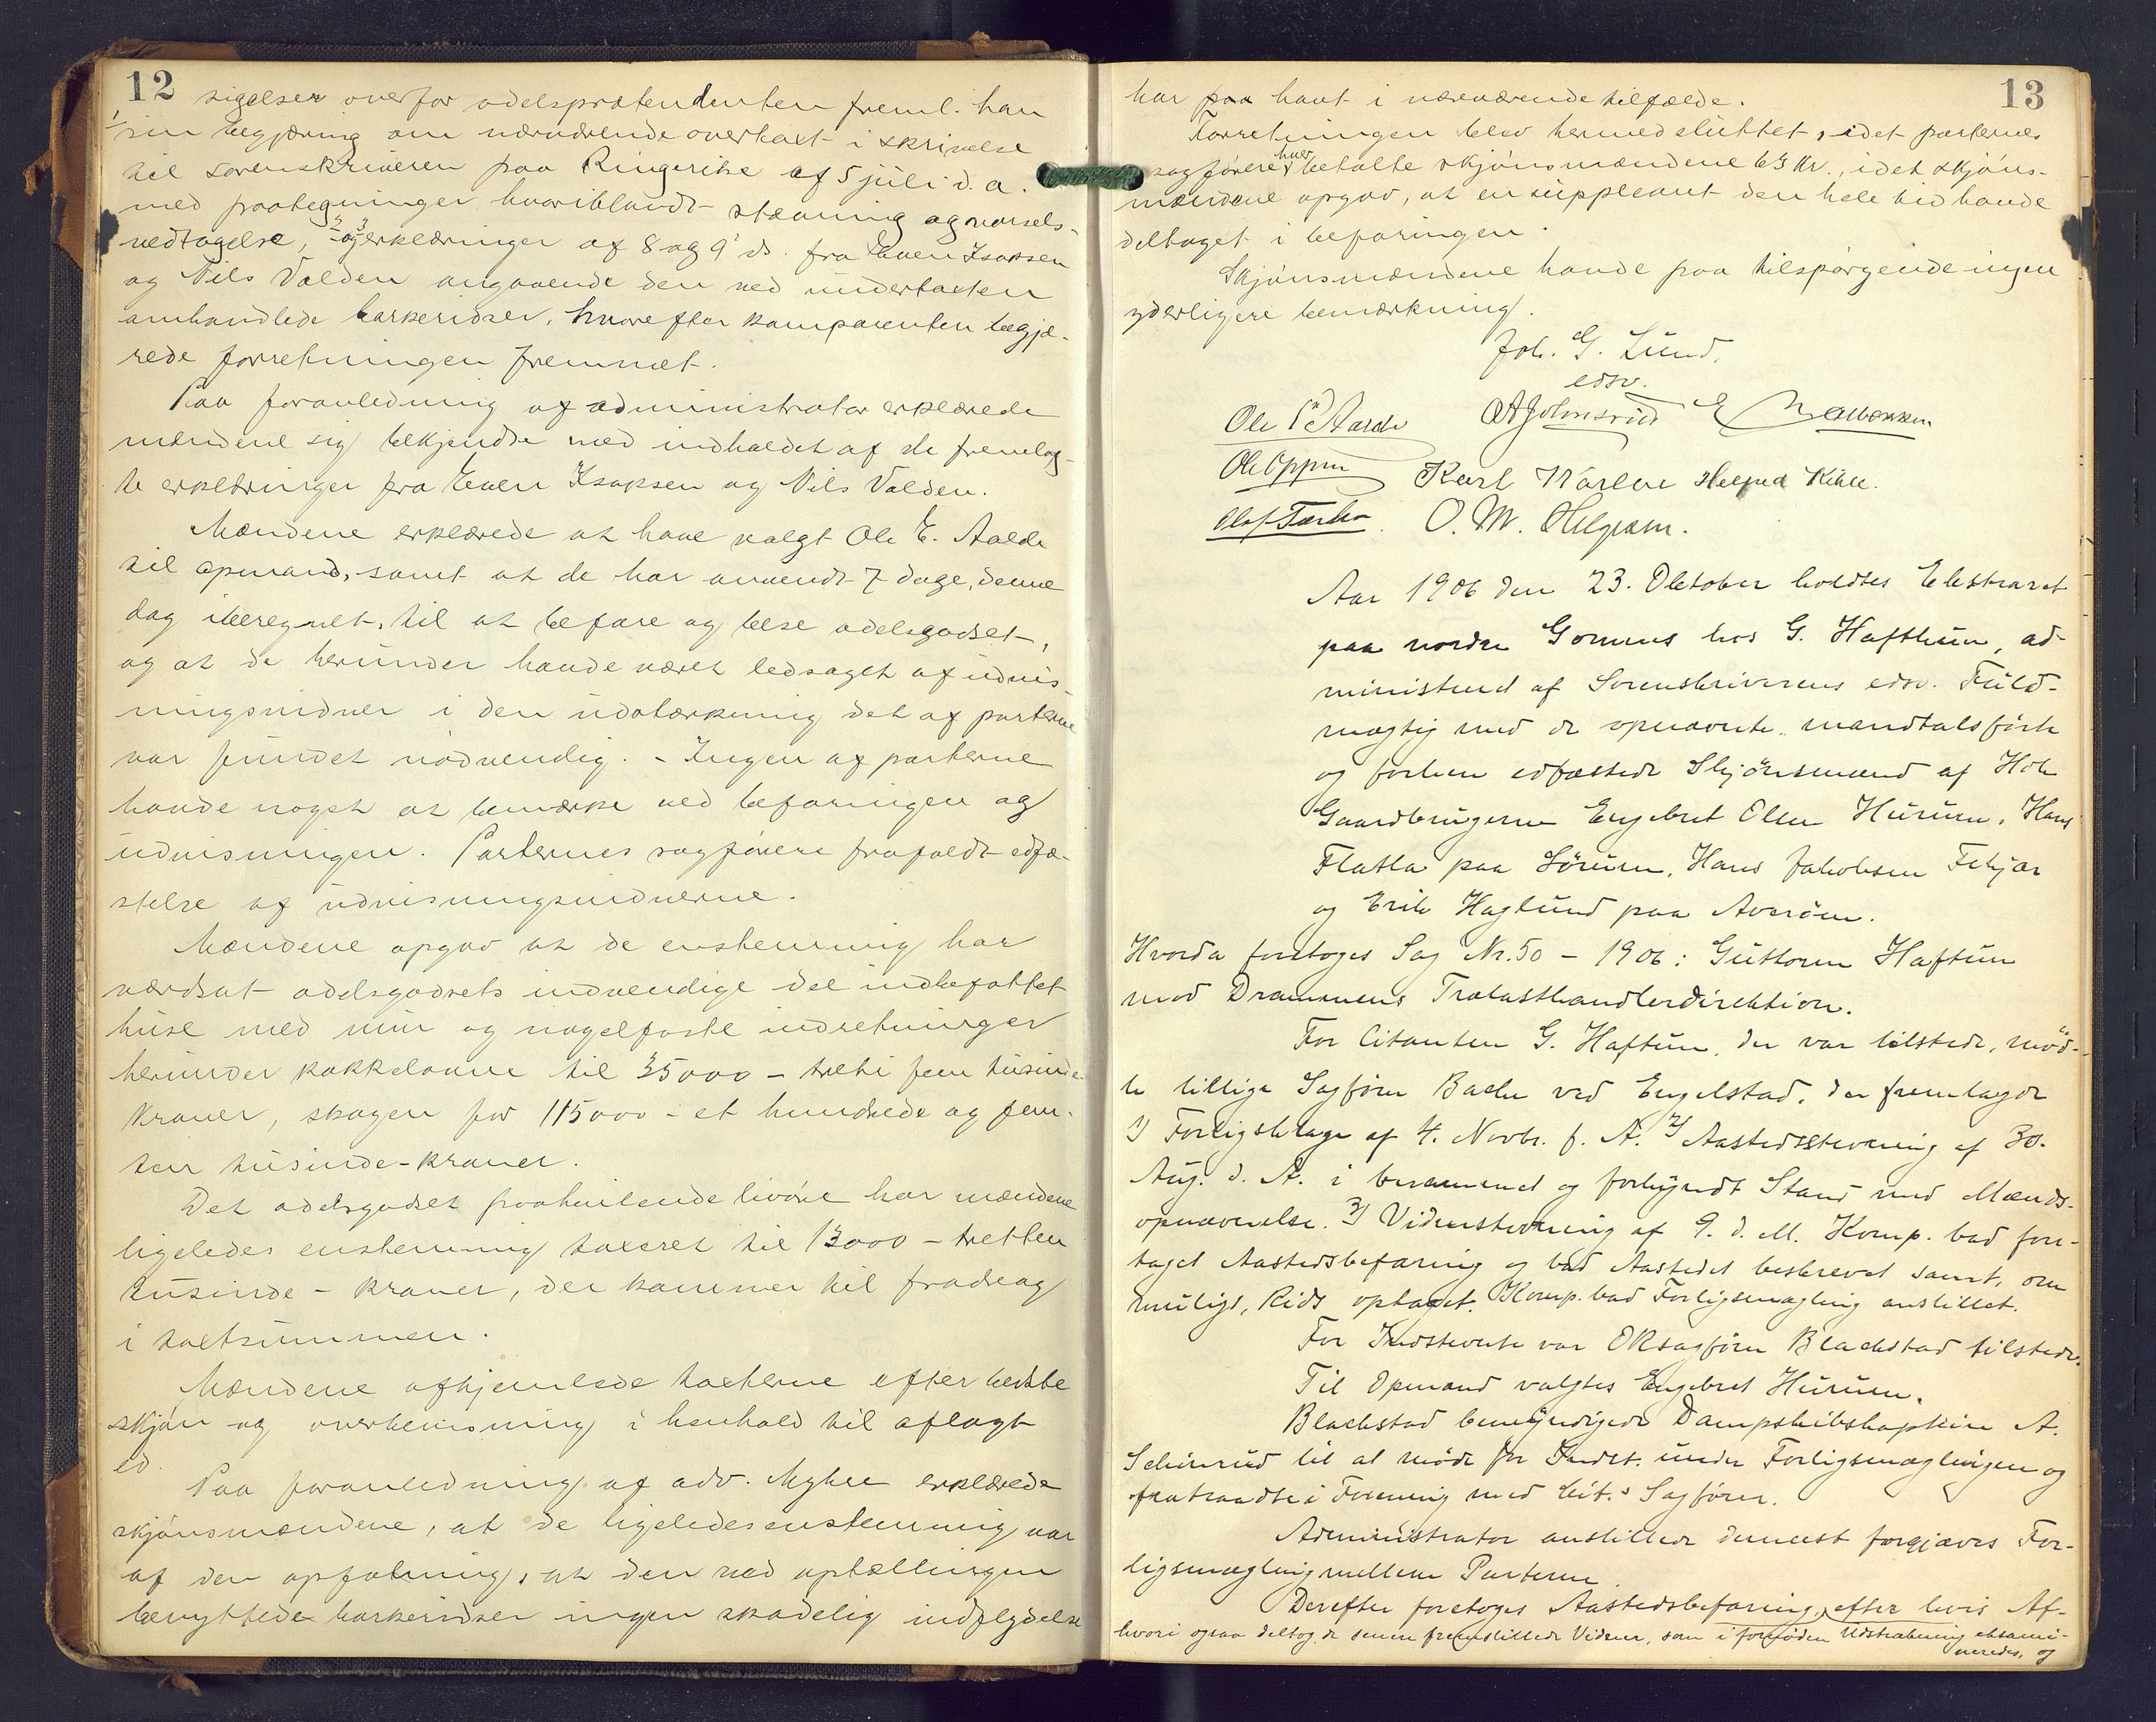 12
sigelser overfor odelsprætendenten freml. han
1/ sin begjæring om nærværende overtakst i skrivelse
til sorenskriveren paa Ringerike af 5 juli d. a.
med paategninger hvoriblandt stævning og varsels-
vedtagelse, 2 og 3 erklæringer af 8 og 9' ds. fra Even Isaksen
og Nils Valden angaaende den ved undertakten
omhandlede barkeridser, hvorefter komparenten begjæ-
rede forretningen fremmet.
Paa foranledning af administrator erklærede
mændene sig bekjendte med indholdet af de fremlag-
te erklæringer fra Even Isaksen og Nils Valden.
Mændene erklærede at have valgt Ole E. Aalde
til opmand, samt at de har anvendt 7 dage, denne
dag iberegnet, til at befare og bese odelsgodset,
og at de herunder havde været ledsaget af udvis-
ningsvidner i den udstrækning det af parterne
var fundet nødvendig. - Ingen af parterne
havde noget at bemærke ved befaringen og
udvisningen. Parternes sagførere frafaldt edfæ-
stelse af udvisningsvidnerne.
Mændene opgav at de enstemmig har
værdsat odelsgodsets indvendige del indbefattet
huse med mur og nagelfaste indretninger
herunder kakkelovne til 35000 - treti fem tusinde
kroner, skogen for 115000 - et hundrede og fem-
ten tusinde - kroner.
Det odelsgodset paahvilende livøre har mændene
ligeledes enstemmig taxeret til 13000 - tretten
tusinde - kroner, der kommer til fradrag
i taktsummen.
Mændene afhjemlede taxterne efter bedste
skjøn og overbevisning i henhold til aflagt
ed.
Paa foranledning af adv. Myhre erklærede
skjønsmændene, at de ligeledes enstemmig var
af den opfatning, at den ved optællingen
benyttede barkeridser ingen skadelig indflydelse
13
har paa havt i nærværende tilfælde.
Forretningen blev hermed sluttet, idet parternes
sagførere hver betalte skjønsmændene 63 kr., idet skjøns-
mændene opgav, at en suppleant den hele tid havde
deltaget i befaringen.
Skjønsmændene havde paa tilspørgende ingen
yderligere bemærkning.
Joh. G. Lund,
edsv.
Ole E Aarde A Johnsrud
Ole Oppen Karl Warloe Helfred Kihle.
Olof Tærke. O. M. Helgesen.
Aar 1906 den 23. Oktober holdtes Ekstraret
paa nordre Gommes hos G. Hafthun, ad-
ministreret af Sorenskriverens edsv. Fuld-
mægtig med de opnævnte mandtalsførte
og forhen edfæstede Skjønsmænd af Hole
Gaardbrugerne Engebret Olsen Hurum, Hans
Flatla paa Sørum, Hans Jakobsen Fekjær
og Erik Haglund paa Averøen.
Hvorda foretoges Sag Nr. 50 - 1906: Guttorm Haftun
mod Drammens Trælasthandlerdirektion.
For Citanten G. Haftun, der var tilstede, mød-
te tillige Sagfører Bache ved Engelstad, der fremlagde
1) Forligsklage af 4. Novbr. f. A. 2) Aastedsstevning af 30.
Aug. d. A. i berammet og forkyndt Stand med Mænds-
opnævnelse. 3) Vidnestevning af 9. d. M. Komp. bad fore-
taget Aastedsbefaring og bad Aastedet beskrevet samt, om
muligt, Rids optaget. Komp. bad Forligsmægling anstillet.
For Indstevnte var ORsagfører Blackstad tilstede.
Til Opmand valgtes Engebret Hurum.
Blackstad bemyndigede Dampskibskaptein A.
Schinrud til at møde for Indst. under Forligsmæglingen og
fratraadte i Forening med Cit.s Sagfører.
Administrator anstillede dernæst forgjæves For-
ligsmægling mellem Parterne.
Derefter foretoges Aastedsbefaring, efter hvis Af-
hvori ogsaa deltog de senere fremstillede Vidner, som i fornøden Udstrækning eksami-
neredes, og